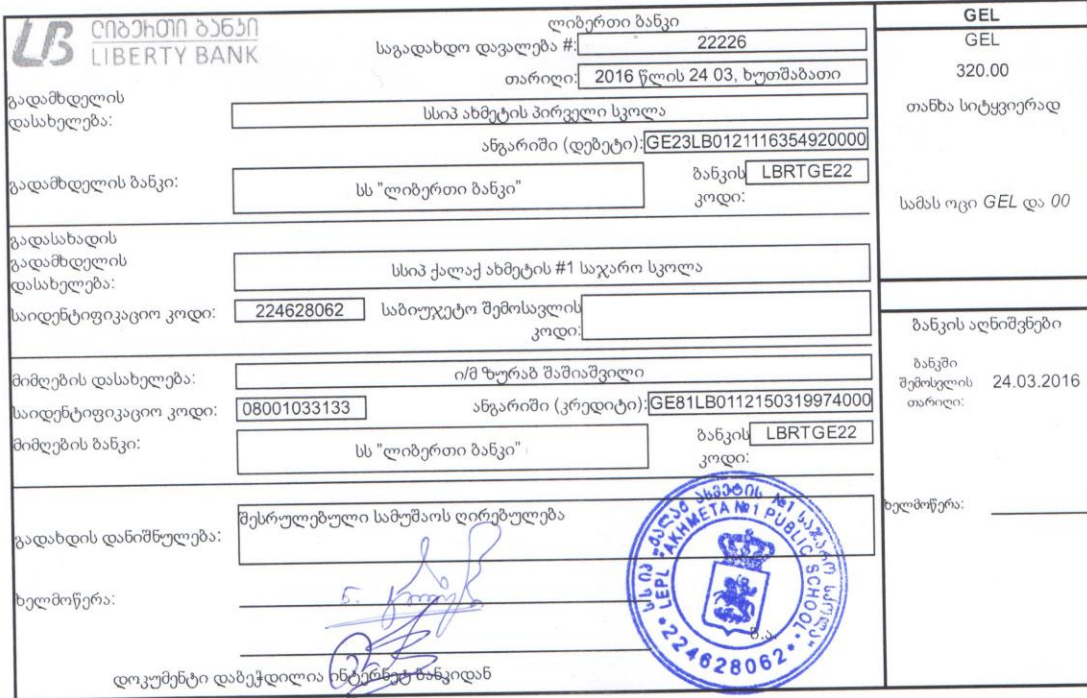 ლიბერთი ბანკი
LIBERTY BANK
ლიბერთი ბანკი
საგადახდო დავალება #: 22226
თარიღი: 2016 წლის 24 03, ხუთშაბათი
გადამხდელის
დასახელება: სსიპ ახმეტის პირველი სკოლა
ანგარიში (დებეტი): GE23LB0121116354920000
გადამხდელის ბანკი: სს "ლიბერთი ბანკი" ბანკის LBRTGE22
კოდი:
გადასახადის
გადამხდელის
დასახელება: სსიპ ქალაქ ახმეტის #1 საჯარო სკოლა
საიდენტიფიკაციო კოდი: 224628062 საბიუჯეტო შემოსავლის
კოდი:
მიმღების დასახელება: ი/მ ზურაბ შაშიაშვილი
საიდენტიფიკაციო კოდი: 08001033133 ანგარიში (კრედიტი): GE81LB0112150319974000
მიმღების ბანკი: სს "ლიბერთი ბანკი" ბანკის LBRTGE22
კოდი:
გადახდის დანიშნულება: შესრულებული სამუშაოს ღირებულება
ხელმოწერა:
ბ.ა.
დოკუმენტი დაბეჭდილია ინტერნეტ ბანკიდან
GEL
GEL
320.00
თანხა სიტყვიერად
სამას ოცი GEL და 00
ბანკის აღნიშვნები
ბანკში
შემოსვლის 24.03.2016
თარიღი:
ხელმოწერა:
სსიპ "ქალაქ ახმეტის №1 საჯარო სკოლა"
LEPL "AKHMETA №1 PUBLIC SCHOOL"
*224628062*